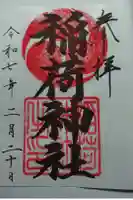 奉拝
稲荷神社
令和七年 二月二十日